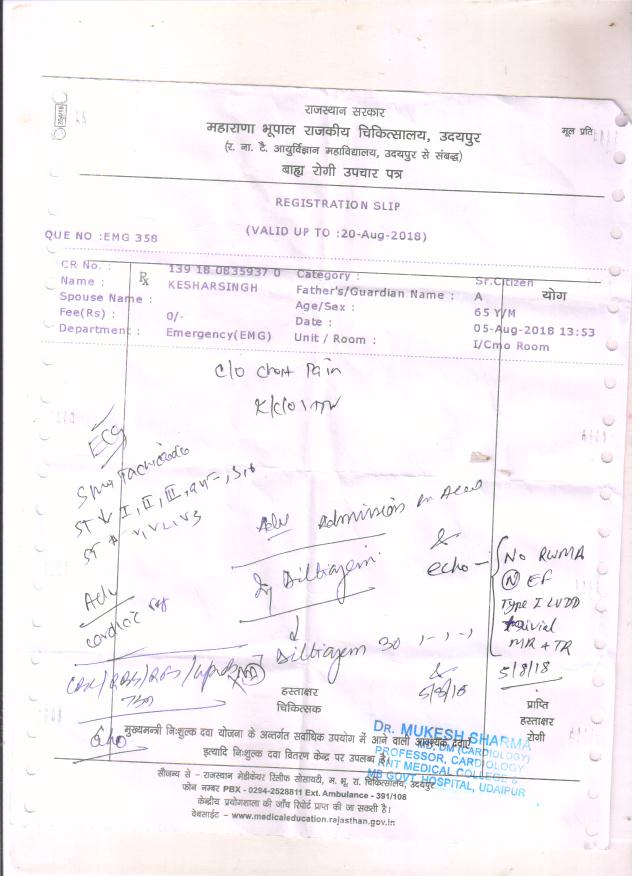 राजस्थान सरकार
महाराणा भूपाल राजकीय चिकित्सालय, उदयपुर
मूल प्रति
(र. ना. टै. आयुर्विज्ञान महाविद्यालय, उदयपुर से संबद्ध)
बाह्य रोगी उपचार पत्र
REGISTRATION SLIP
QUE NO :EMG 358
(VALID UP TO :20-Aug-2018)
CR No. : 139 18 0835937 0 Category : Sr.Citizen
Name : ℞ KESHARSINGH Father's/Guardian Name : A योग
Spouse Name : Age/Sex : 65 Y/M
Fee(Rs) : 0/- Date : 05-Aug-2018 13:53
Department : Emergency(EMG) Unit / Room : I/Cmo Room
C/O Chest Pain
K/C/O HTN
ECG
ST ↓ I, II, III, avF
ST V1, V2, V3
Adv Admission
&
echo - No RWMA
(N) EF
Type I LVDD
Trivial
MR + TR
5/8/18
Diltiazem
Adv
cardiac
↓
Diltiazem 30
&
5/8/18
Echo
हस्ताक्षर
चिकित्सक
प्राप्ति
हस्ताक्षर
रोगी
मुख्यमन्त्री निःशुल्क दवा योजना के अन्तर्गत सर्वाधिक उपयोग में आने वाली आवश्यक दवाएं
इत्यादि निःशुल्क दवा वितरण केन्द्र पर उपलब्ध है।
DR. MUKESH SHARMA
MD, DM (CARDIOLOGY)
PROFESSOR, CARDIOLOGY
RNT MEDICAL COLLEGE &
MB GOVT. HOSPITAL, UDAIPUR
सौजन्य से - राजस्थान मेडीकेयर रिलीफ सोसायटी, म. भू. रा. चिकित्सालय, उदयपुर
फोन नम्बर PBX - 0294-2528811 Ext. Ambulance - 391/108
केन्द्रीय प्रयोगशाला की जाँच रिपोर्ट प्राप्त की जा सकती है।
वेबसाईट - www.medicaleducation.rajasthan.gov.in